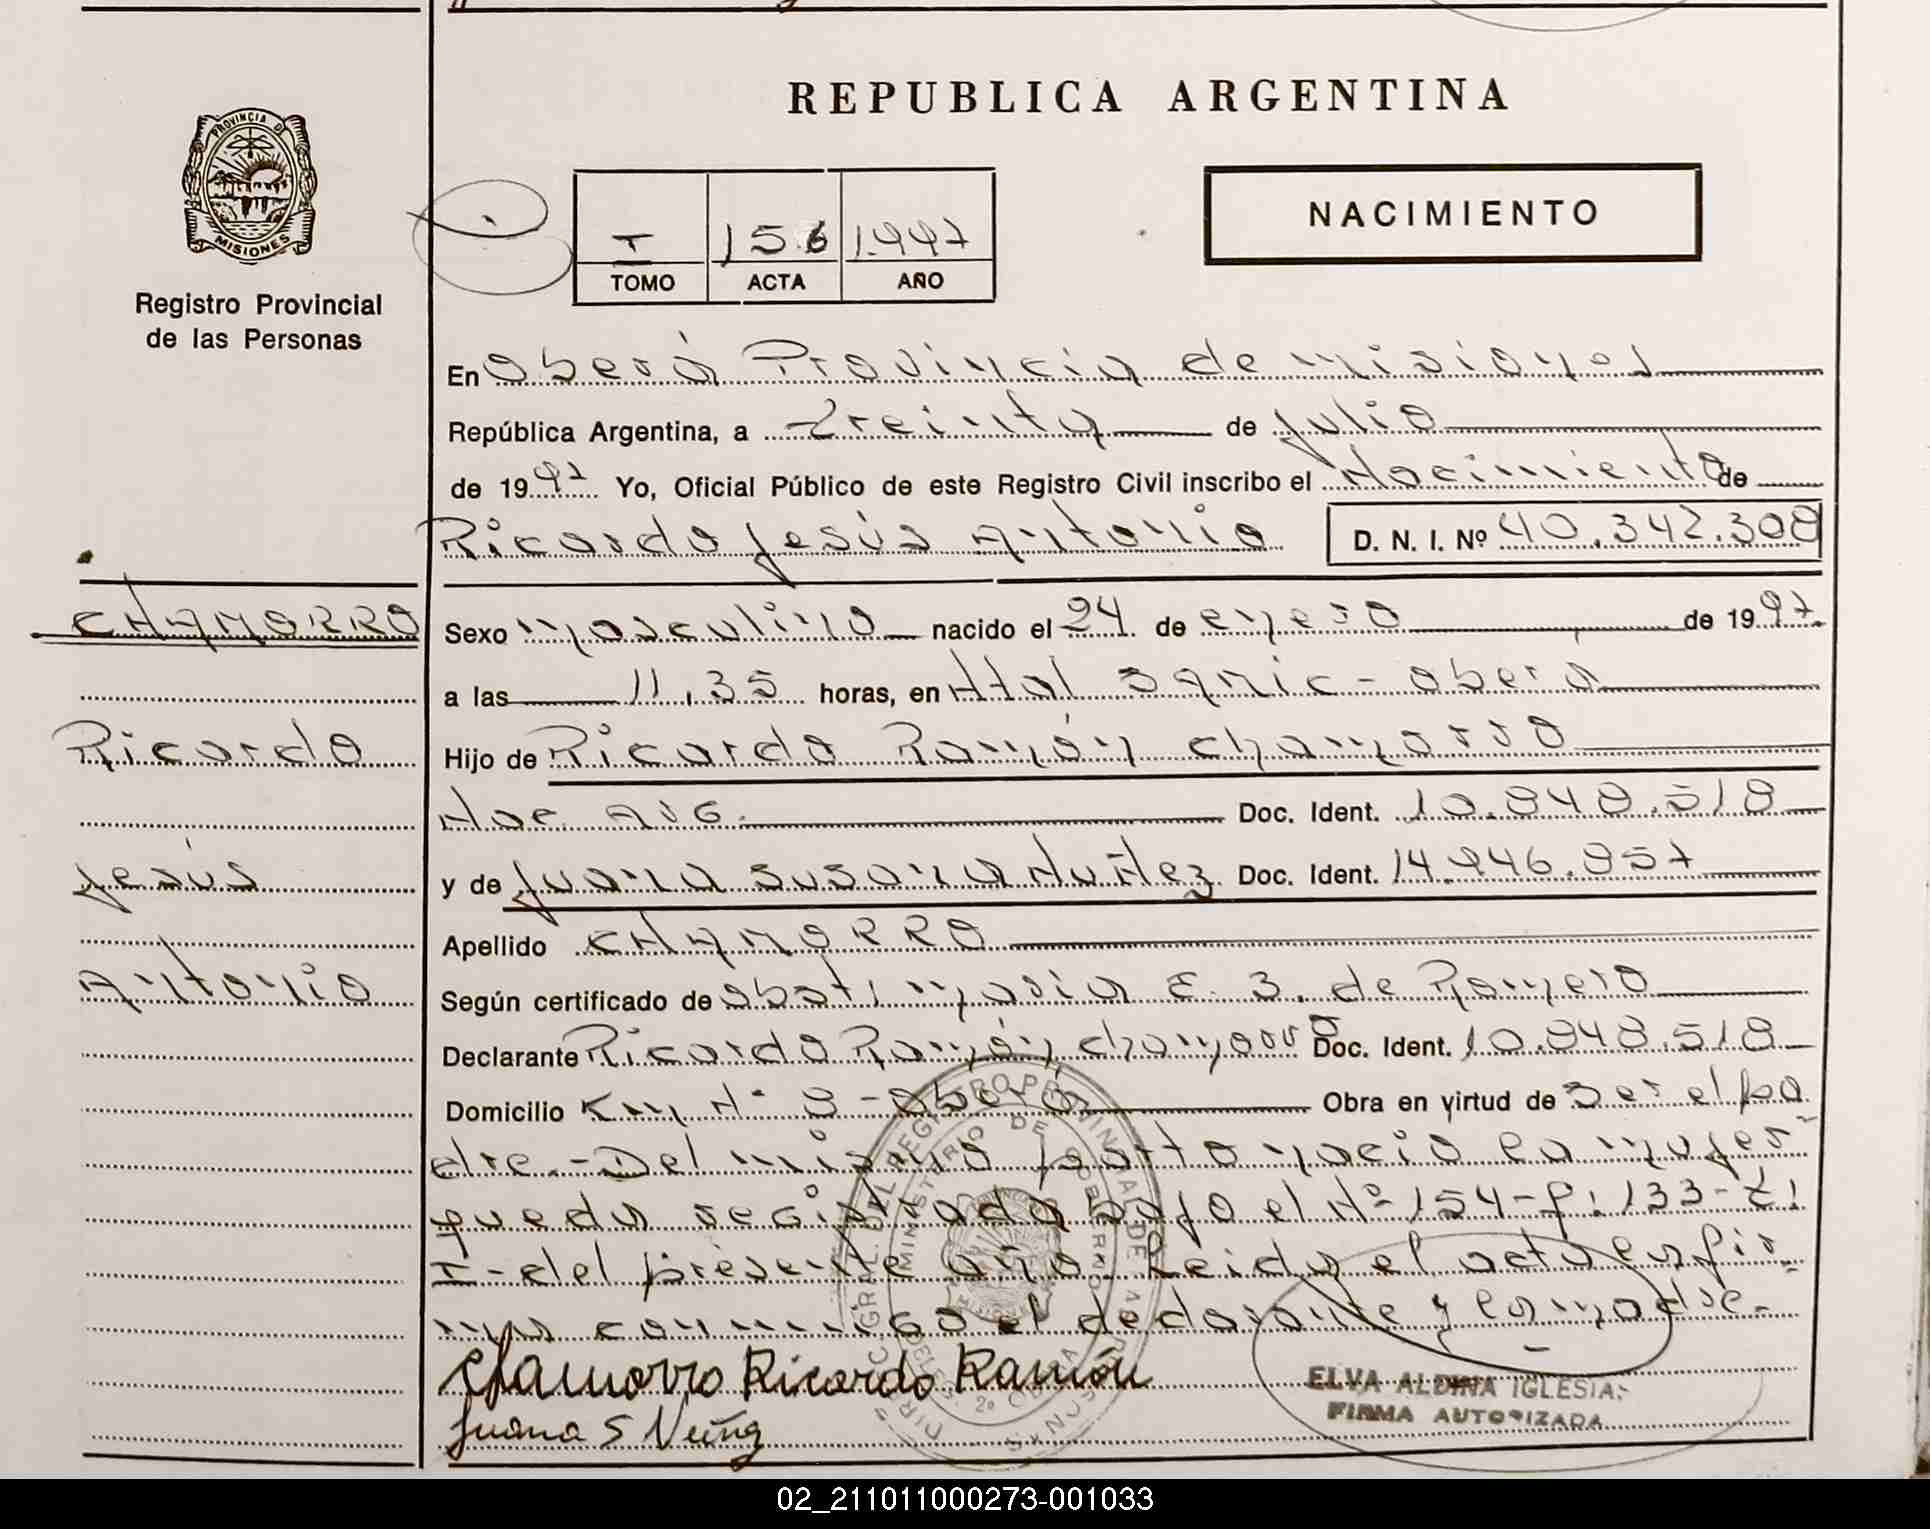 REPUBLICA ARGENTINA
PROVINCIA DE
MISIONES
Registro Provincial
de las Personas
I 156 1.997
TOMO ACTA AÑO
NACIMIENTO
En Oberá Provincia de Misiones
República Argentina, a Treinta de Julio
de 1997 Yo, Oficial Público de este Registro Civil inscribo el Nacimiento de
Ricardo Jesús Antonio D. N. I. Nº 40.342.308
CHAMORRO
Ricardo
Jesús
Antonio
Sexo masculino nacido el 24 de enero de 1997.
a las 11,35 horas, en Htal Samic - Oberá
Hijo de Ricardo Ramón Chamorro
Nac. Arg. Doc. Ident. 10.848.518
y de Juana Susana Nuñez Doc. Ident. 14.946.857
Apellido CHAMORRO
Según certificado de obst, María E. S. de Romero
Declarante Ricardo Ramón Chamorro Doc. Ident. 10.848.518
Domicilio Km Nº 8 - Oberá Obra en virtud de ser el pa
dre.- Del mismo parto nació la mujer
queda registrada bajo el Nº 154-f: 133-T:
I- del presente año. Leida el acta la fir-
ma conmigo el declarante y la madre.-
Chamorro Ricardo Ramón
Juana S Nuñez
ELVA ALDINA IGLESIAS
FIRMA AUTORIZADA
02_211011000273-001033